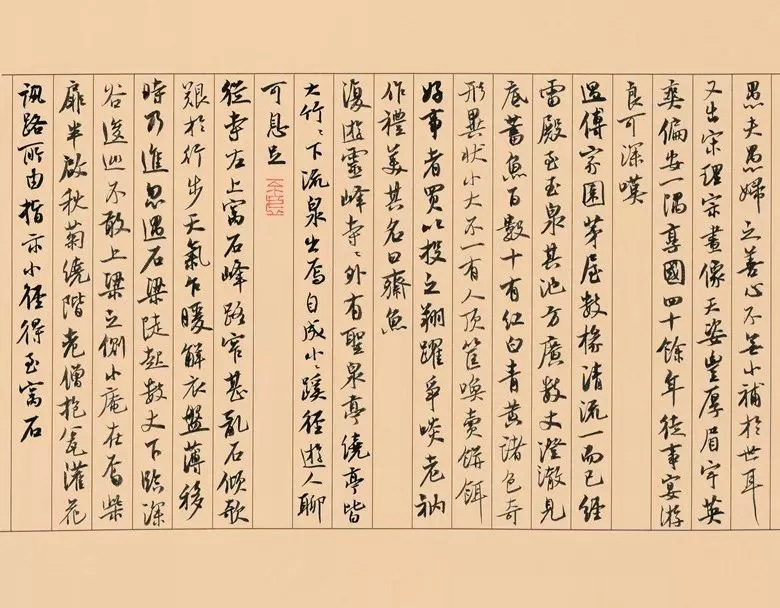 愚夫愚婦之善心不無小補於世耳
又出宋理宗畫像天姿豐厚眉宇英
爽偏安一隅享國四十餘年徒事宴游
良可深嘆
過傅家園茅屋數椽清流一而已經
雷殿至玉泉其池方廣數丈澄澈見
底蓄魚百數十有紅白青黃諸色奇
形異狀小大不一有人頂筐喚賣餅餌
好事者買以投之翔躍爭啖老衲
作禮美其名曰齋魚
復遊靈峰寺寺外有聖泉亭繞亭皆
大竹竹下流泉出焉自成小小蹊徑遊人聊
可息足
從寺右上窩石峰路窄甚亂石傾欹
艱於行步天氣乍暖解衣盤薄移
時乃進忽遇石梁陡起數丈下臨深
谷逡巡不敢上梁之側小庵在焉柴
扉半啟秋菊繞階老僧抱瓮灌花
訊路所由指示小徑得至窩石